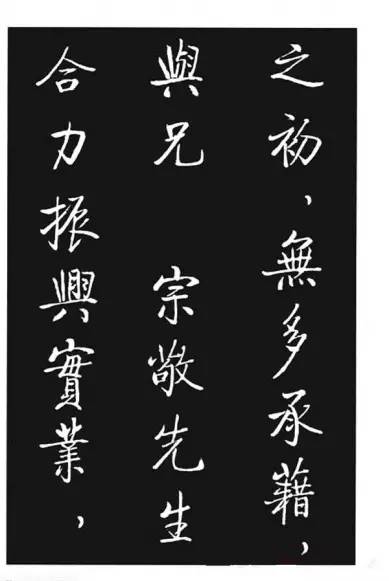 之初、無多承藉，
與兄 宗敞先生
合力振興實業，